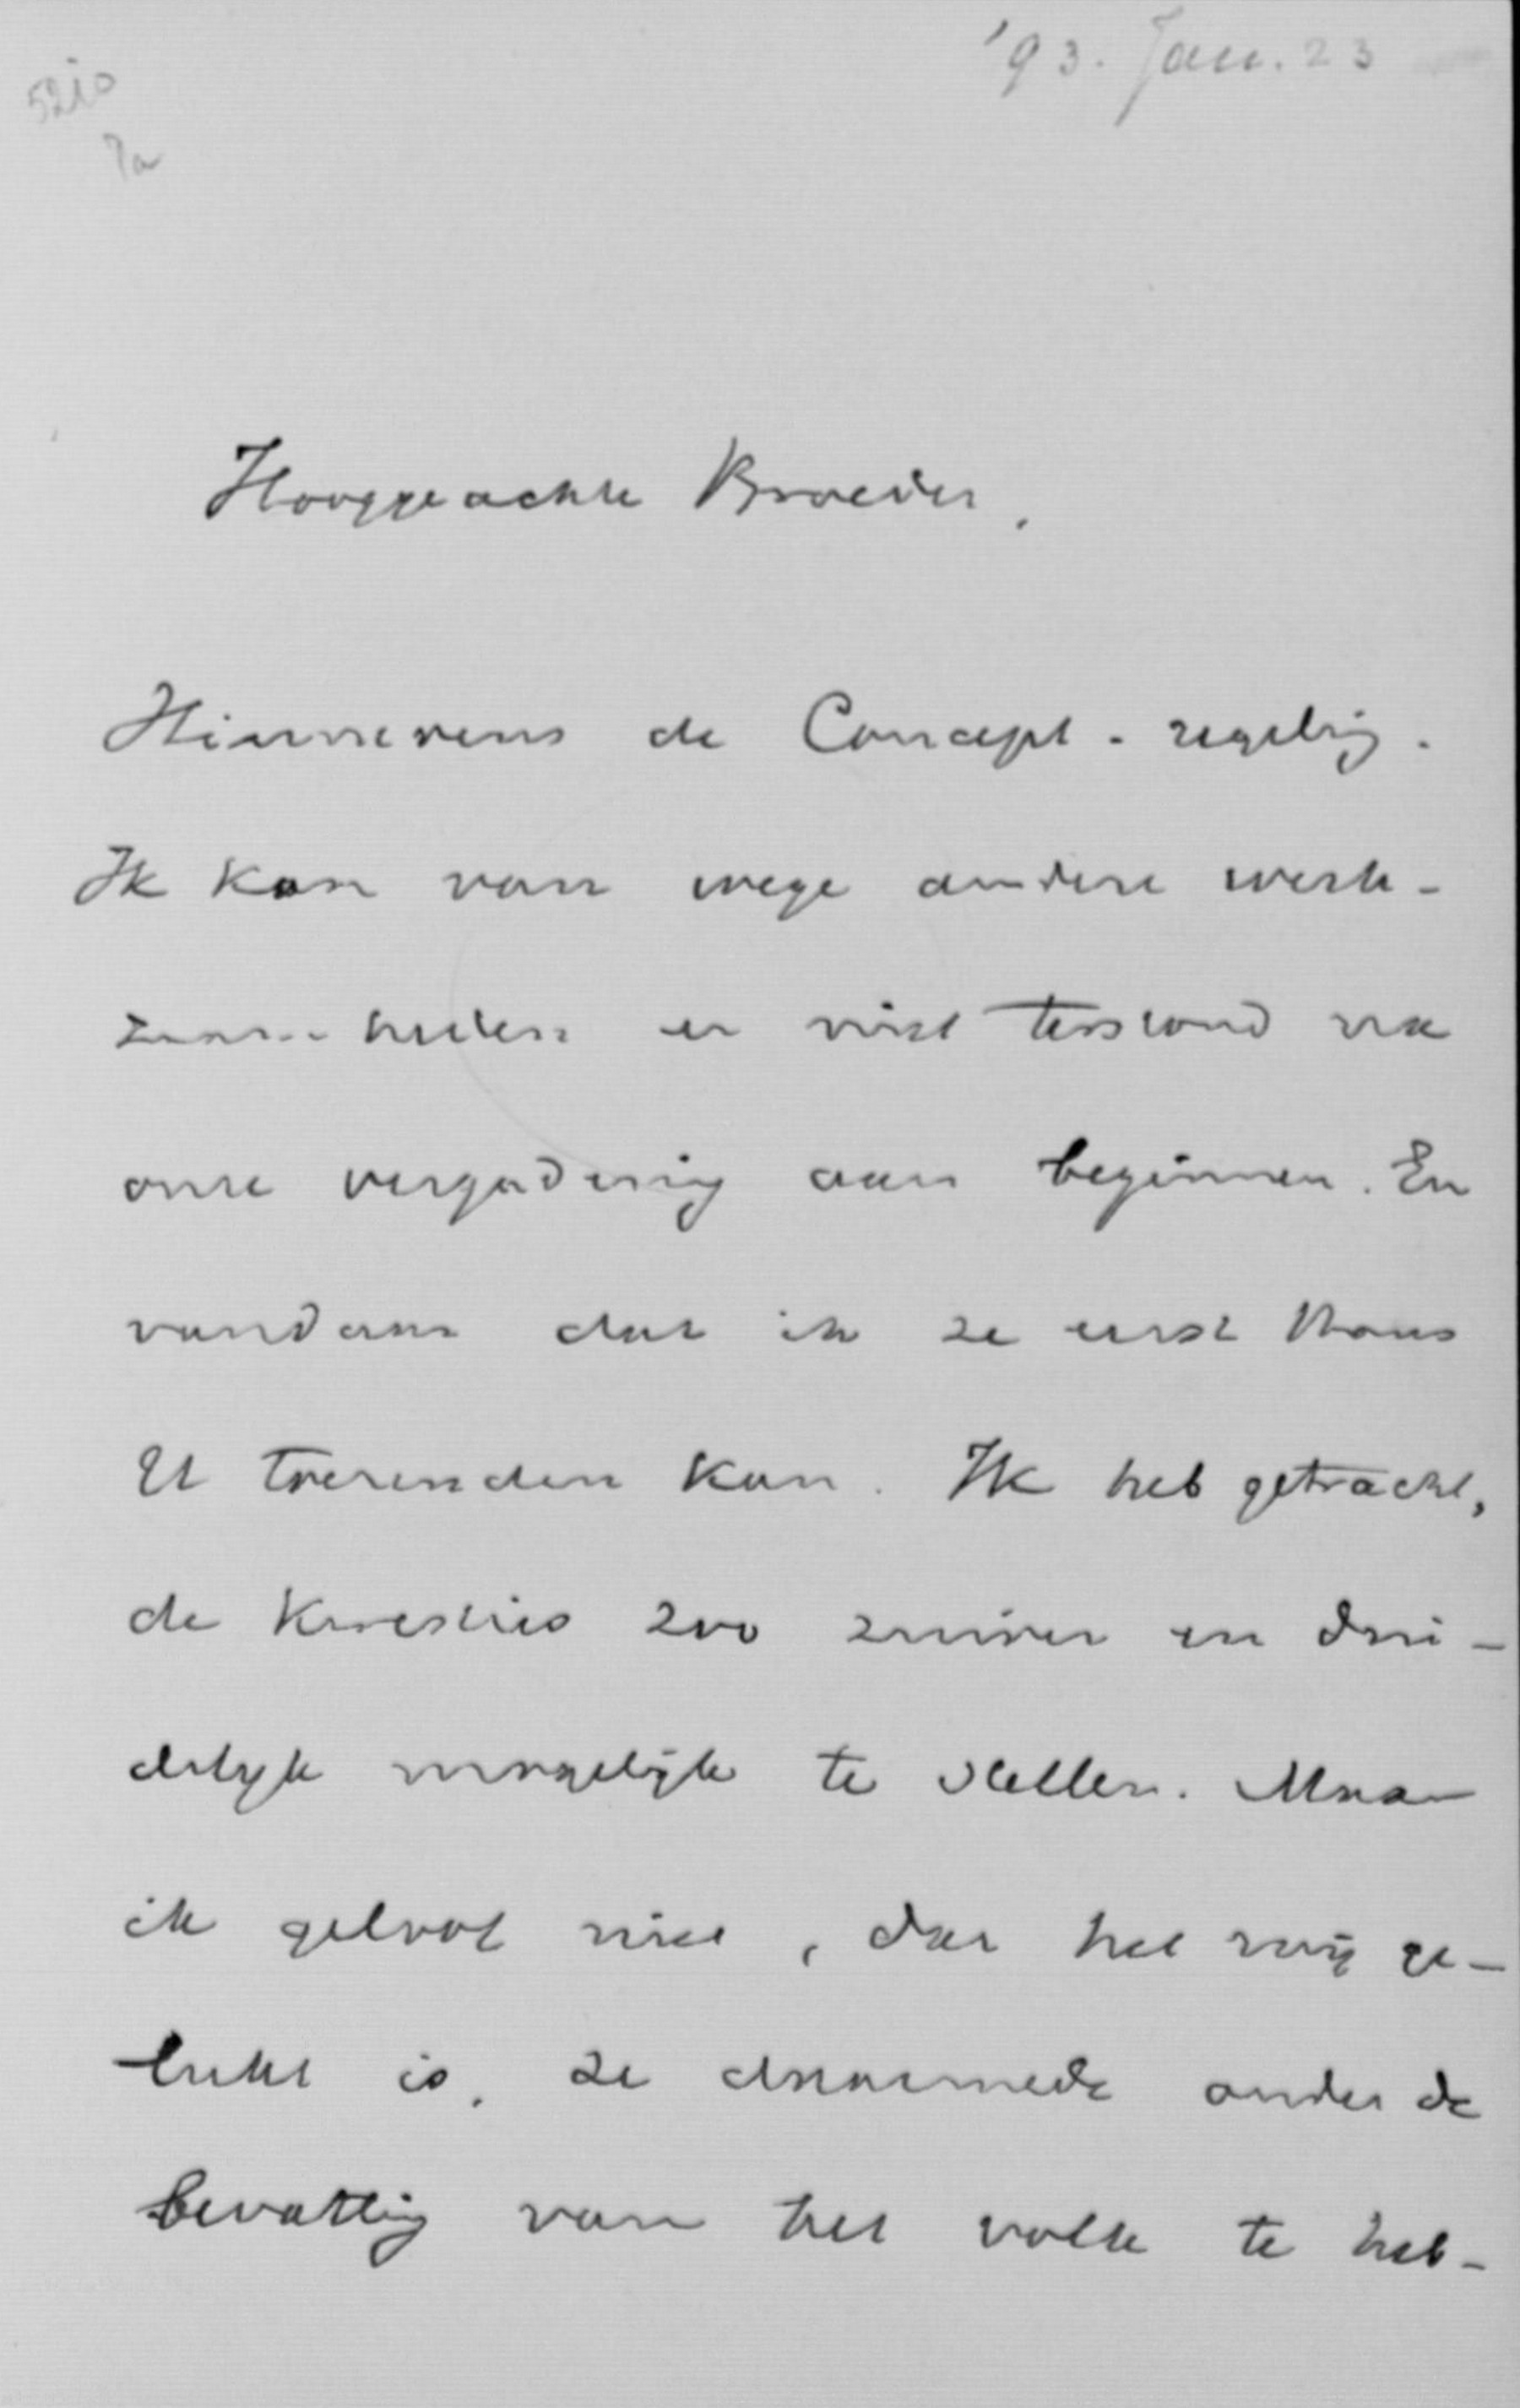 '93. Jan. 23
5210
7a
Hooggeachte Broeder,
Hiernevens de Concept-regeling.
Ik kon van wege andere werk-
zaamheden er niet terstond na
onze vergadering aan beginnen. En
vandaar dat ik ze eerst thans
U toezenden kan. Ik heb getracht,
de kwesties zoo zuiver en dui-
delijk mogelijk te stellen. Maar
ik geloof niet, dat het mij ge-
lukt is, ze daarmede onder de
bevatting van het volk te heb-